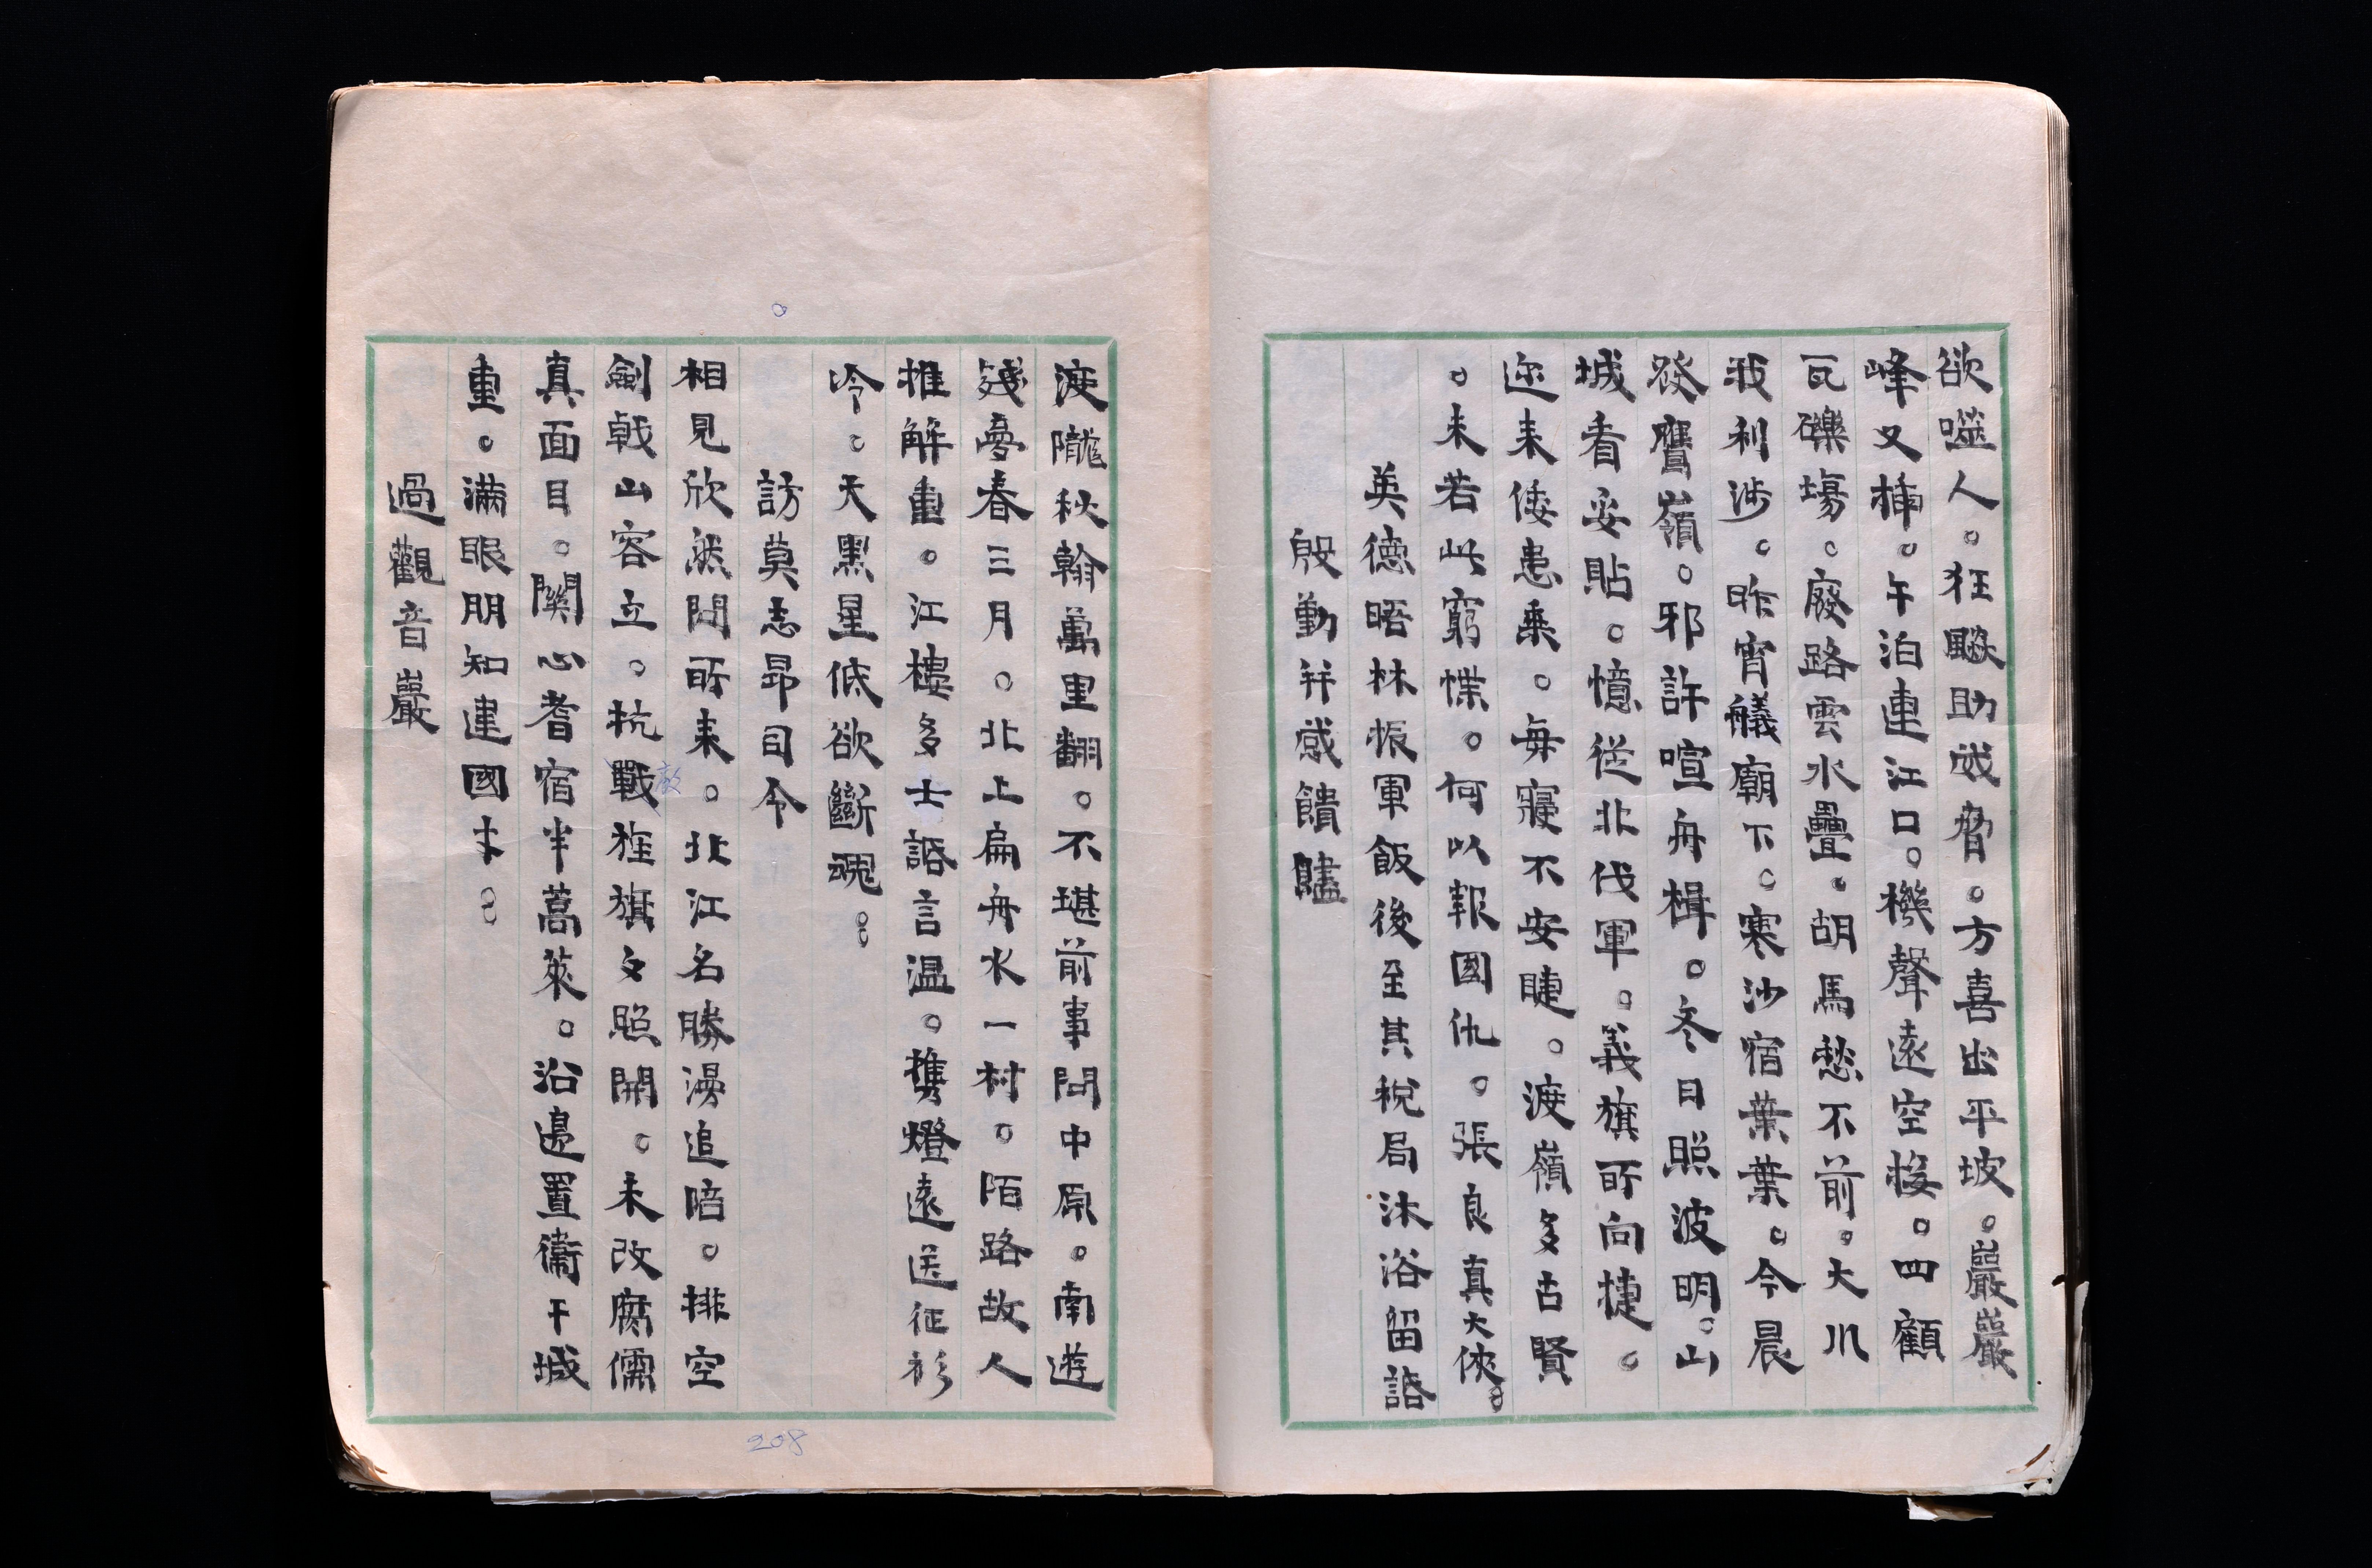 欲噬人。狂飈助威脅。方喜出平坡。巖巖
峰又插。午泊連江口。機聲遠空接。四顧
瓦礫場。廢路雲水疊。胡馬愁不前。大川
我利涉。昨宵艤廟下。寒沙宿葉葉。今晨
發鷹嶺。邪許喧舟楫。冬日照波明。山
城看妥貼。憶從北伐軍。義旗所向捷。
邇来倭患亟。每寢不安睫。渡嶺多古賢
。未若此窮惵。何以報國仇。張良真大俠。
英德晤林振軍飯後至其稅局沐浴留語
殷勤并感饋贐
渡隴秋翰萬里翻。不堪前事問中原。南遊
殘夢春三月。北上扁舟水一村。陌路故人
推解重。江樓多士語言温。攜燈遠送征衫
冷。天黑星低欲斷魂。
訪莫志昂司令
相見欣然問所来。北江名勝漫追陪。排空
劍戟山容立。抗戰旌旗夕照開。未改腐儒
敵
真面目。關心耆宿半蒿萊。沿邊置衞干城
重。滿眼朋知建國才。
過觀音巖
208